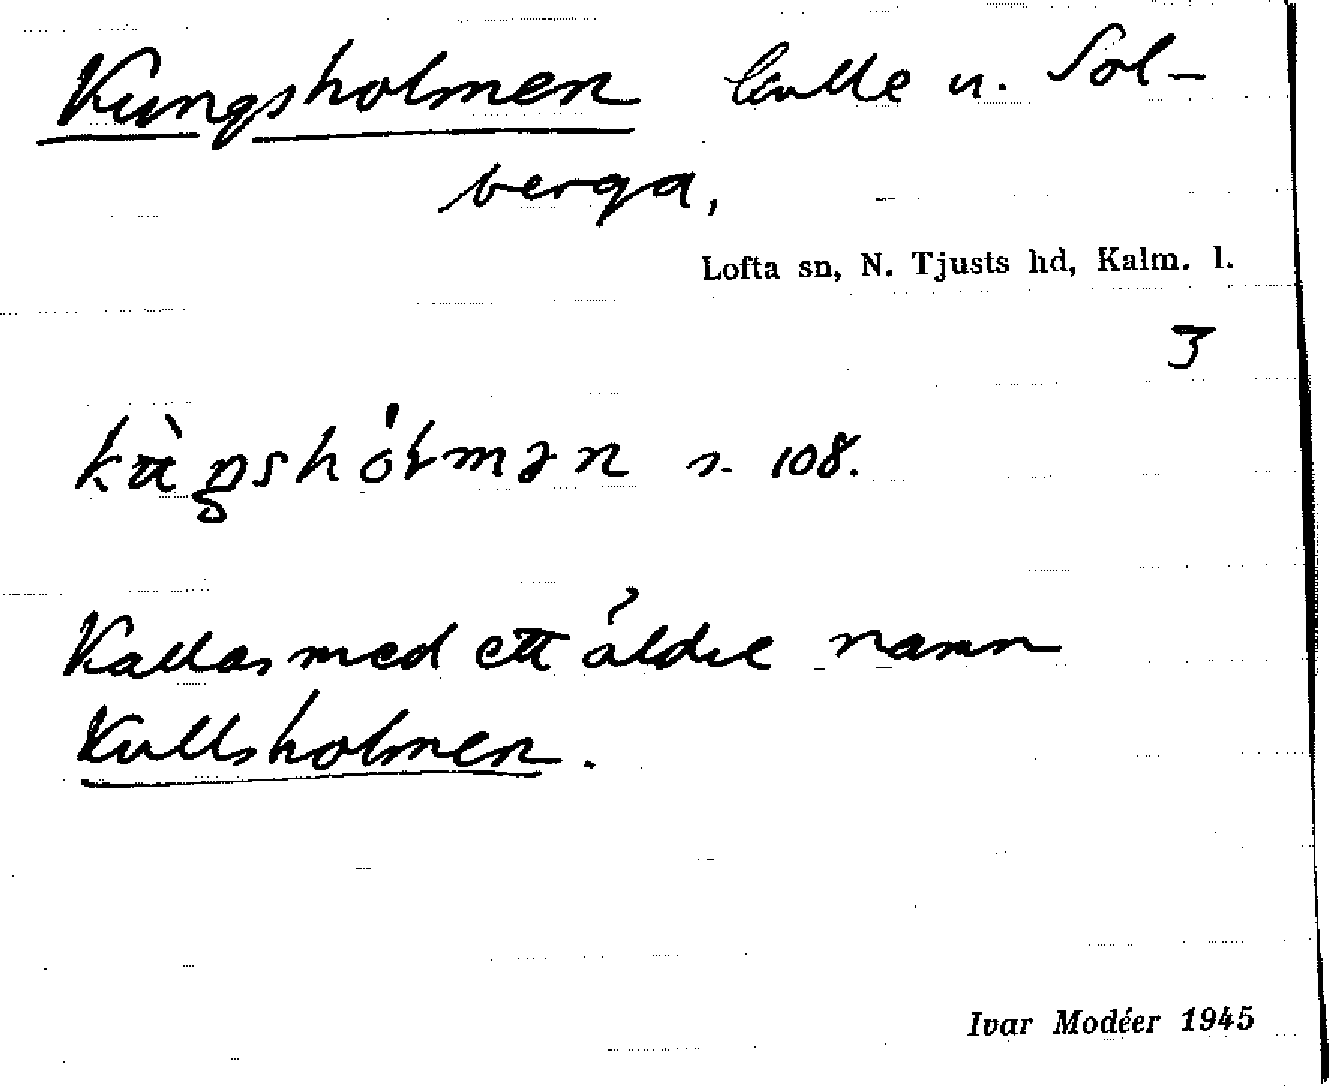 Kungsholmen kulle u. Sol-
berga,
Lofta sn, N. Tjusts hd, Kalm. l.
3
s. 108.
Kallas med ett äldre namn
Kullsholmen.
Ivar Modéer 1945